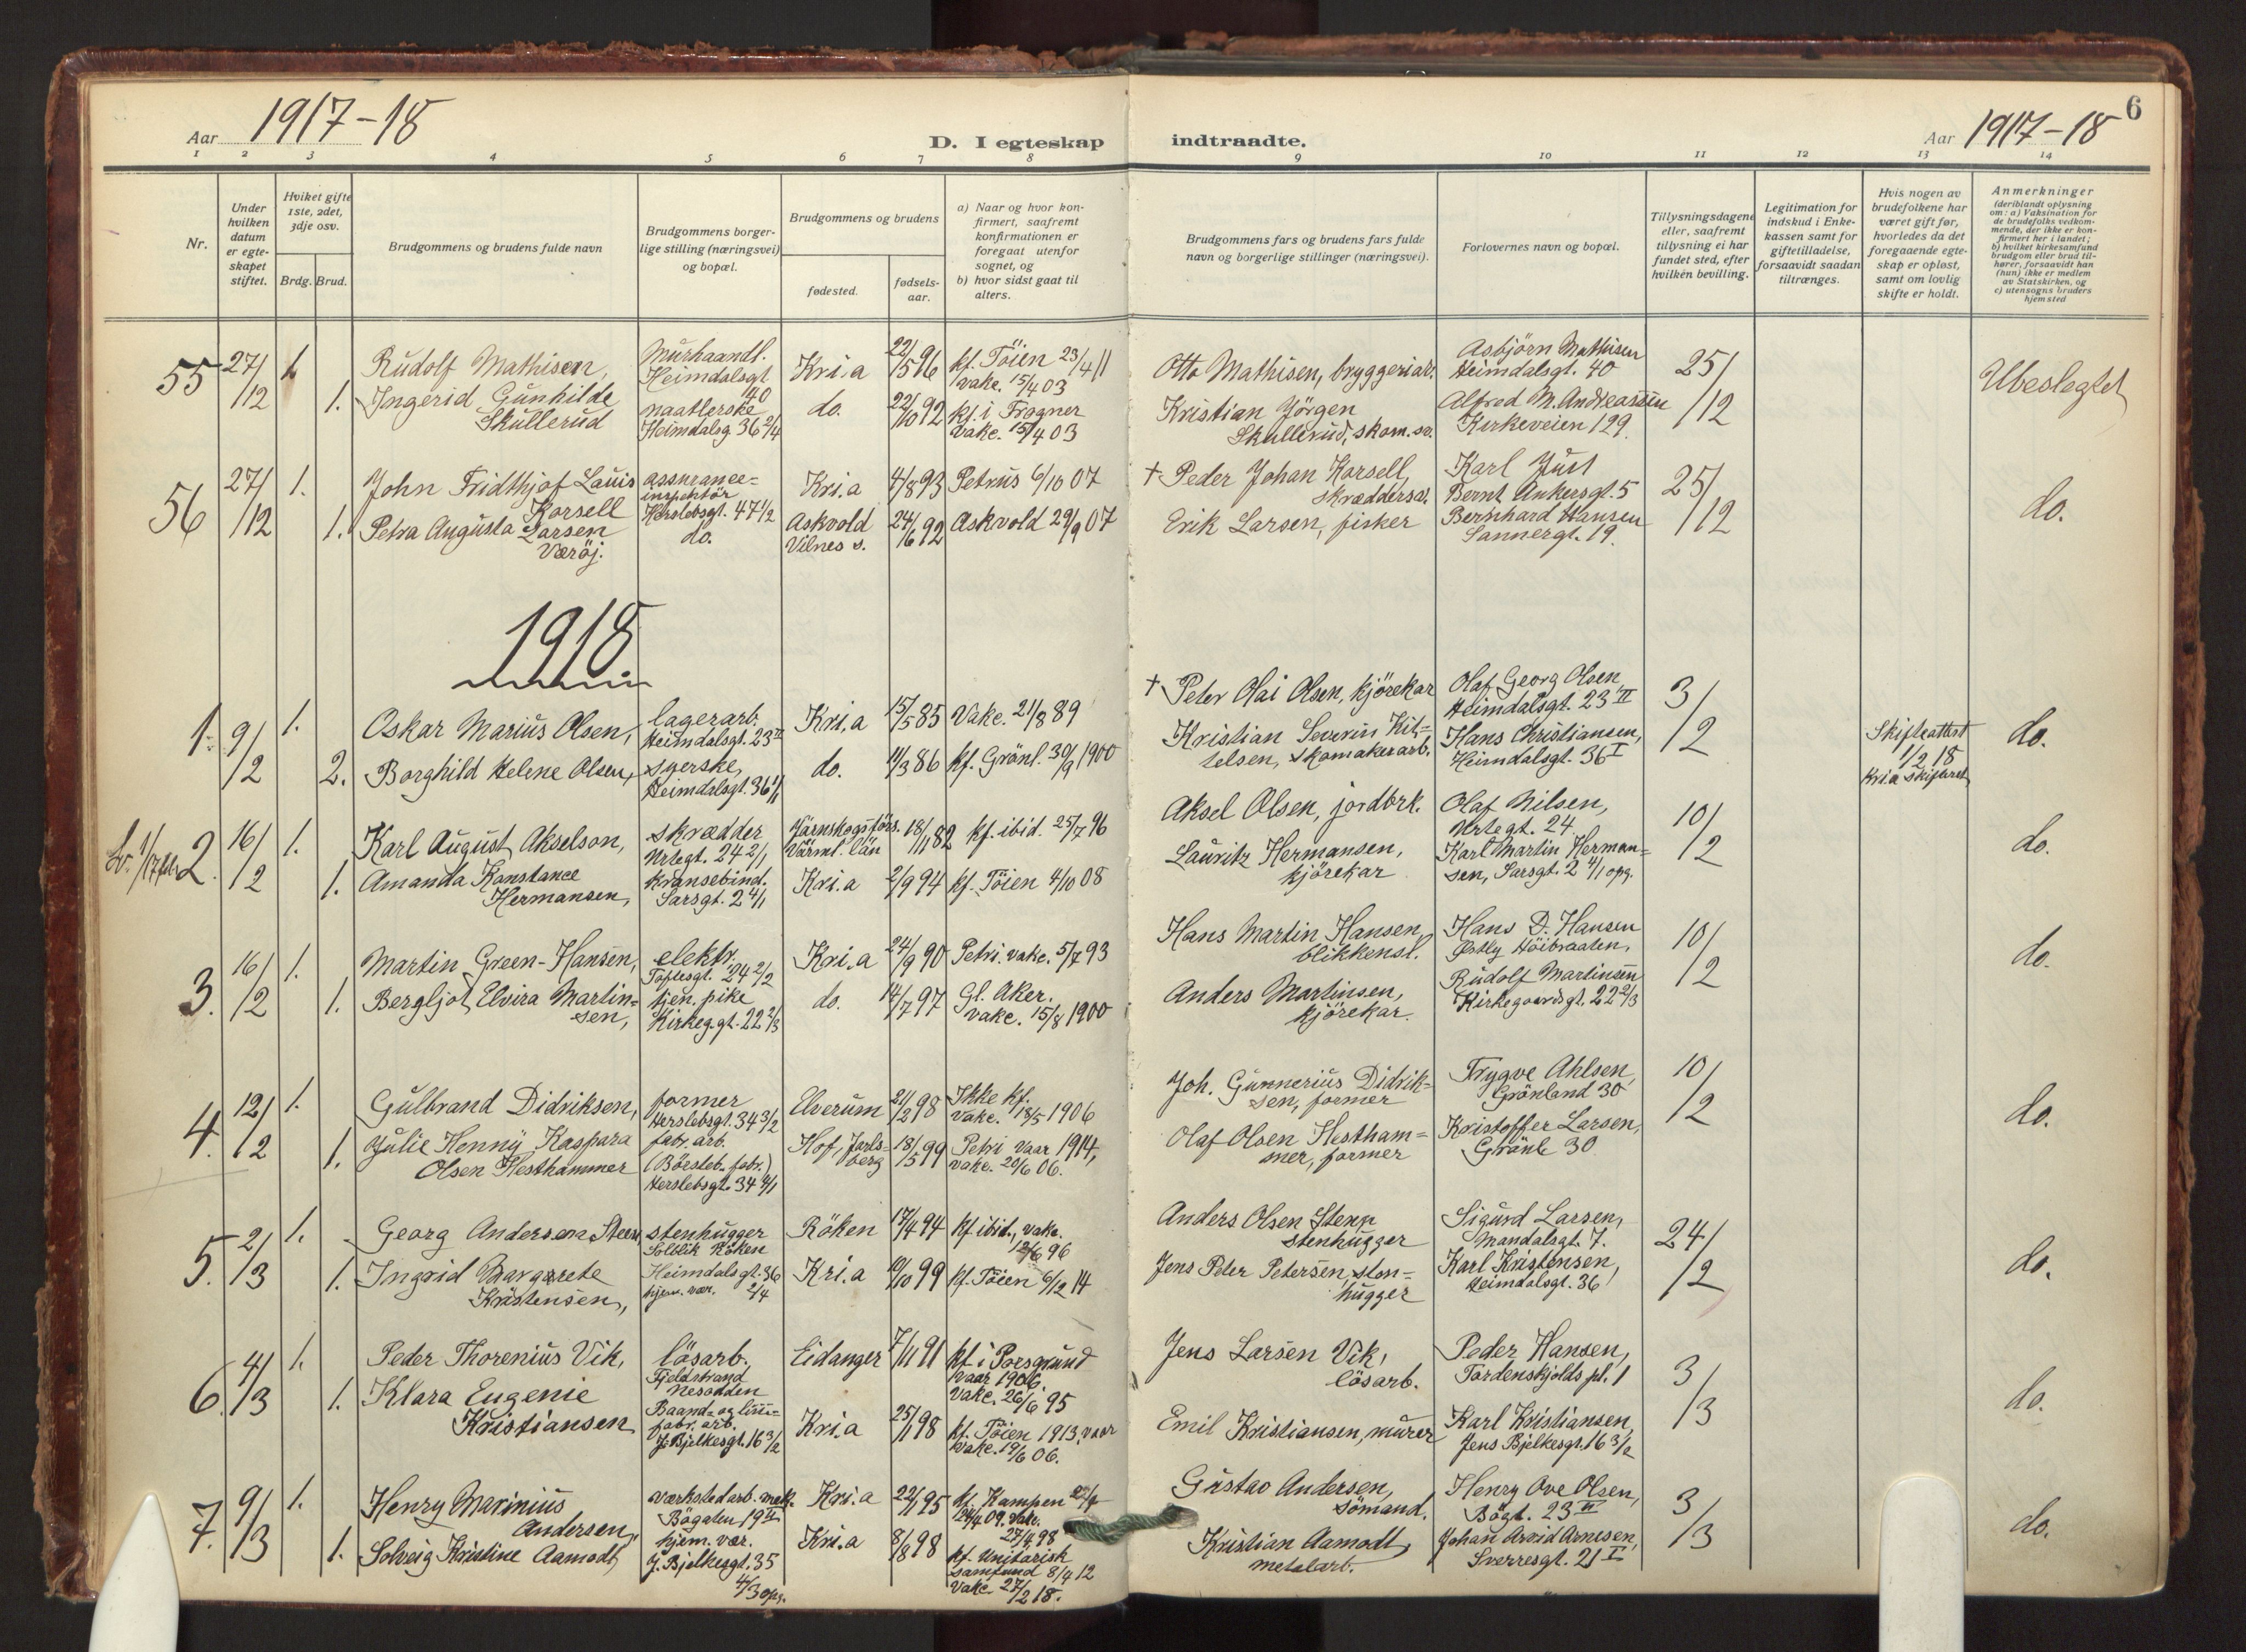 Aar 1917-18
D. I egteskap
indtraadte.
Aar 1917-18
6
1 2 3 4 5 6 7 8 9 10 11 12 13 14
Nr.
Under
hvilken
datum
er egte-
skapet
stiftet.
Hviket gifte
1ste, 2det,
3dje osv.
Brdg.
Brud.
Brudgommens og brudens fulde navn
Brudgommens borger-
lige stilling (næringsvei)
og bopæl.
Brudgommens og brudens
fødested.
fødsels-
aar.
a) Naar og hvor kon-
firmert, saafremt
konfirmationen er
foregaat utenfor
sognet, og
b) hvor sidst gaat til
alters.
Brudgommens fars og brudens fars fulde
navn og borgerlige stillinger (næringsvei).
Forlovernes navn og bopæl.
Tillysningsdagene
eller, saafremt
tillysning ei har
fundet sted, efter
hvilken bevilling.
Legitimation for
indskud i Enke-
kassen samt for
giftetilladelse,
forsaavidt saadan
tiltrænges.
Hvis nogen av
brudefolkene har
været gift før,
hvorledes da det
foregaaende egte-
skap er opløst,
samt om lovlig
skifte er holdt.
Anmerkninger
(deriblandt oplysning
om: a) Vaksination for
de brudefolks vedkom-
mende, der ikke er kon-
firmert her i landet;
b) hvilket kirkesamfund
brudgom eller brud til-
hører, forsaavidt han
(hun) ikke er medlem
av Statskirken, og
c) utensogns bruders
hjemsted
55 27/12 1. 1.
Rudolf Mathisen,
Ingerid Gunhilde
Skullerud
Murhaandl.
Heimdalsgt
40
naatlerske
Heimdalsg 36 2/4
Kri.a
do.
22/5 96
22/10 92
kf. Töien 23/4 11
vake. 15/4 03
kf. i Frogner
vake. 15/4 03
Otto Mathisen, bryggeriar.
Kristian Jörgen
Skullerud, skom. sv.
Asbjörn Mathisen
Heimdalsgt. 40
Alfred M. Andreassen
Kirkeveien 129.
25/12
Ubeslegtet
56 27/12 1. 1.
John Fridthjof Lauis
Korsell
Petra Augusta Larsen
Værøj.
assurance=
inspektör
Herslebsgt. 47 1/2
do.
Kri.a
Askvold
Vilnes s.
4/8 93
24/6 92
Petrus 6/10 07
Askvold 29/9 07
† Peder Johan Korsell
skræddersv.
Erik Larsen, fisker
Karl Just
Bernt Ankersgt. 5
Bernhard Hansen
Sannergt. 19.
25/12
do.
1918.
1. 9/2 1. 2.
Oskar Marius Olsen,
Borghild Helene Olsen,
lagerarb.
Heimdalsgt. 23 II
syerske,
Heimdalsgt. 36 1/1
Kri.a
do.
15/5 85
11/3 86
Vake. 21/8 89
kf. Grönl. 30/9 1900
† Peter Olai Olsen, kjörekar
Kristian Severin Kit=
telsen, skomakerarb.
Olaf Georg Olsen,
Heimdalsgt. 23 II
Hans Christiansen,
Heimdalsgt. 36 I
3/2
Skifteattest
1/2 18
Kria skifteret
do.
2. 16/2 1. 1.
Karl August Akselson,
Amanda Konstance
Hermansen,
skrædder
Urtegt. 24 2/1
kransebind.
Sarsgt. 2 4/1
Järnskogsförs.
Värml. län
Kri.a
18/11 82
2/9 94
kf. ibid. 25/7 96
kf. Töien 4/10 08
Aksel Olsen, jordbrk.
Lauritz Hermansen,
kjörekar
Olaf Nilsen,
Urtegt. 24
Karl Martin Herman=
sen, Sarsgt. 2 4/1 opg.
10/2
do.
3. 16/2 1. 1.
Martin Green-Hansen,
Bergljot Elvira Martin=
sen,
elektr.
Toftesgt. 24 2/2
tjen. pike
Kirkeg.gt. 22 2/3
Kri.a
do.
24/9 90
14/7 97
Petri. vake. 5/7 93
Gl. Aker.
vake. 15/8 1900
Hans Martin Hansen,
blikkensl.
Anders Martinsen,
kjörekar.
Hans D. Hansen
Østly Höibraaten,
Rudolf Martinsen
Kirkegaardsgt. 22 2/3
10/2
do.
4. 12/2 1. 1.
Gulbrand Didriksen,
Julie Henny Kaspara
Olsen Hesthammer
former
Herslebsgt. 34 3/2
fabr. arb.
(Börsteb. fabr.)
Herslebsgt. 34 4/1
Elverum
Hof, Jarls=
berg
21/2 98
18/5 99
Ikke kf.
vake. 18/5 1906
Petri vaar 1914,
vake. 20/6 06.
Joh. Gunnerius Didrik=
sen, former
Olaf Olsen Hestham=
mer, former
Trygve Ahlsen,
Grönland 30
Kristoffer Larsen,
Grönl. 30
10/2
do.
5. 2/3 1. 1.
Georg Andersena Steen
Ingrid Margrete
Kristensen,
stenhugger
Solblik Röken
Heimdalsgt. 36
hjem. vær. 2/4
Röken
Kri.a
17/4 94
9/10 99
kf ibid., vake.
12/6 96
kf. Töien 6/12 14
Anders Olsen Steen
stenhugger
Jens Peter Petersen, sten=
hugger
Sigurd Larsen,
Mandalsgt. 7.
Karl Kristensen,
Heimdalsgt. 36
24/2
do.
6. 4/3 1. 1.
Peder Thorenius Vik,
Klara Eugenie
Kristiansen
lösarb.,
Fjeldstrand
Nesodden
Baand- og lim=
fabr. arb.
J. Bjelkesgt. 16 3/2
Eidanger
Kri.a
7/11 91
25/1 98
kf. i Porsgrund
vaar 1906
vake. 26/6 95
kf. Töien 1913, vaar
vake. 19/6 06.
Jens Larsen Vik,
lösarb.
Emil Kristiansen, murer
Peder Hansen,
Tordenskjolds pl. 1
Karl Kristiansen,
Jens Bjelkesgt. 16 3/2
3/3
do.
7. 9/3 1. 1.
Henry Marinius
Andersen,
Solveig Kristine Aamodt,
værkstedarb. mek.
Bögaten 19 II
hjem. vær.
J. Bjelkesgt. 35
4/3 opg.
Kri.a
Kri.a
22/1 95
8/8 98
kf. Kampen
24/4 09. Vake.
27/4 98
kf. Unitarisk
samfund 8/4 12
vake. 27/2 18.
Gustav Andersen,
sömand.
Kristian Aamodt,
metalarb.
Henry Ove Olsen,
Bögt. 23 II
Johan Arvid Arnesen,
Sverresgt. 21 I
3/3
do.